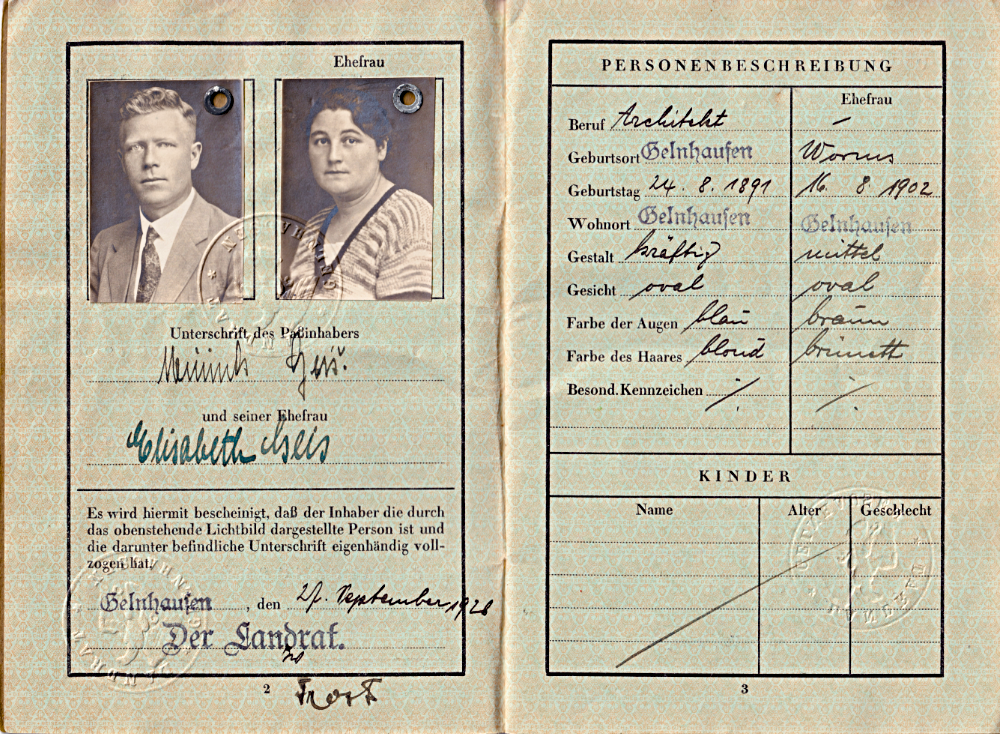 Ehefrau
Unterschrift des Paßinhabers
und seiner Ehefrau
Elisabeth Geis
Es wird hiermit bescheinigt, daß der Inhaber die durch
das obenstehende Lichtbild dargestellte Person ist und
die darunter befindliche Unterschrift eigenhändig voll-
zogen hat.
Gelnhausen, den September 1928
Der Landrat.
Trost
2
PERSONENBESCHREIBUNG
Ehefrau
Beruf Architekt —
Geburtsort Gelnhausen Worms
Geburtstag 24. 8. 1891 16. 8 1902
Wohnort Gelnhausen Gelnhausen
Gestalt kräftig mittel
Gesicht oval oval
Farbe der Augen blau braun
Farbe des Haares blond brünett
Besond. Kennzeichen
KINDER
Name Alter Geschlecht
3